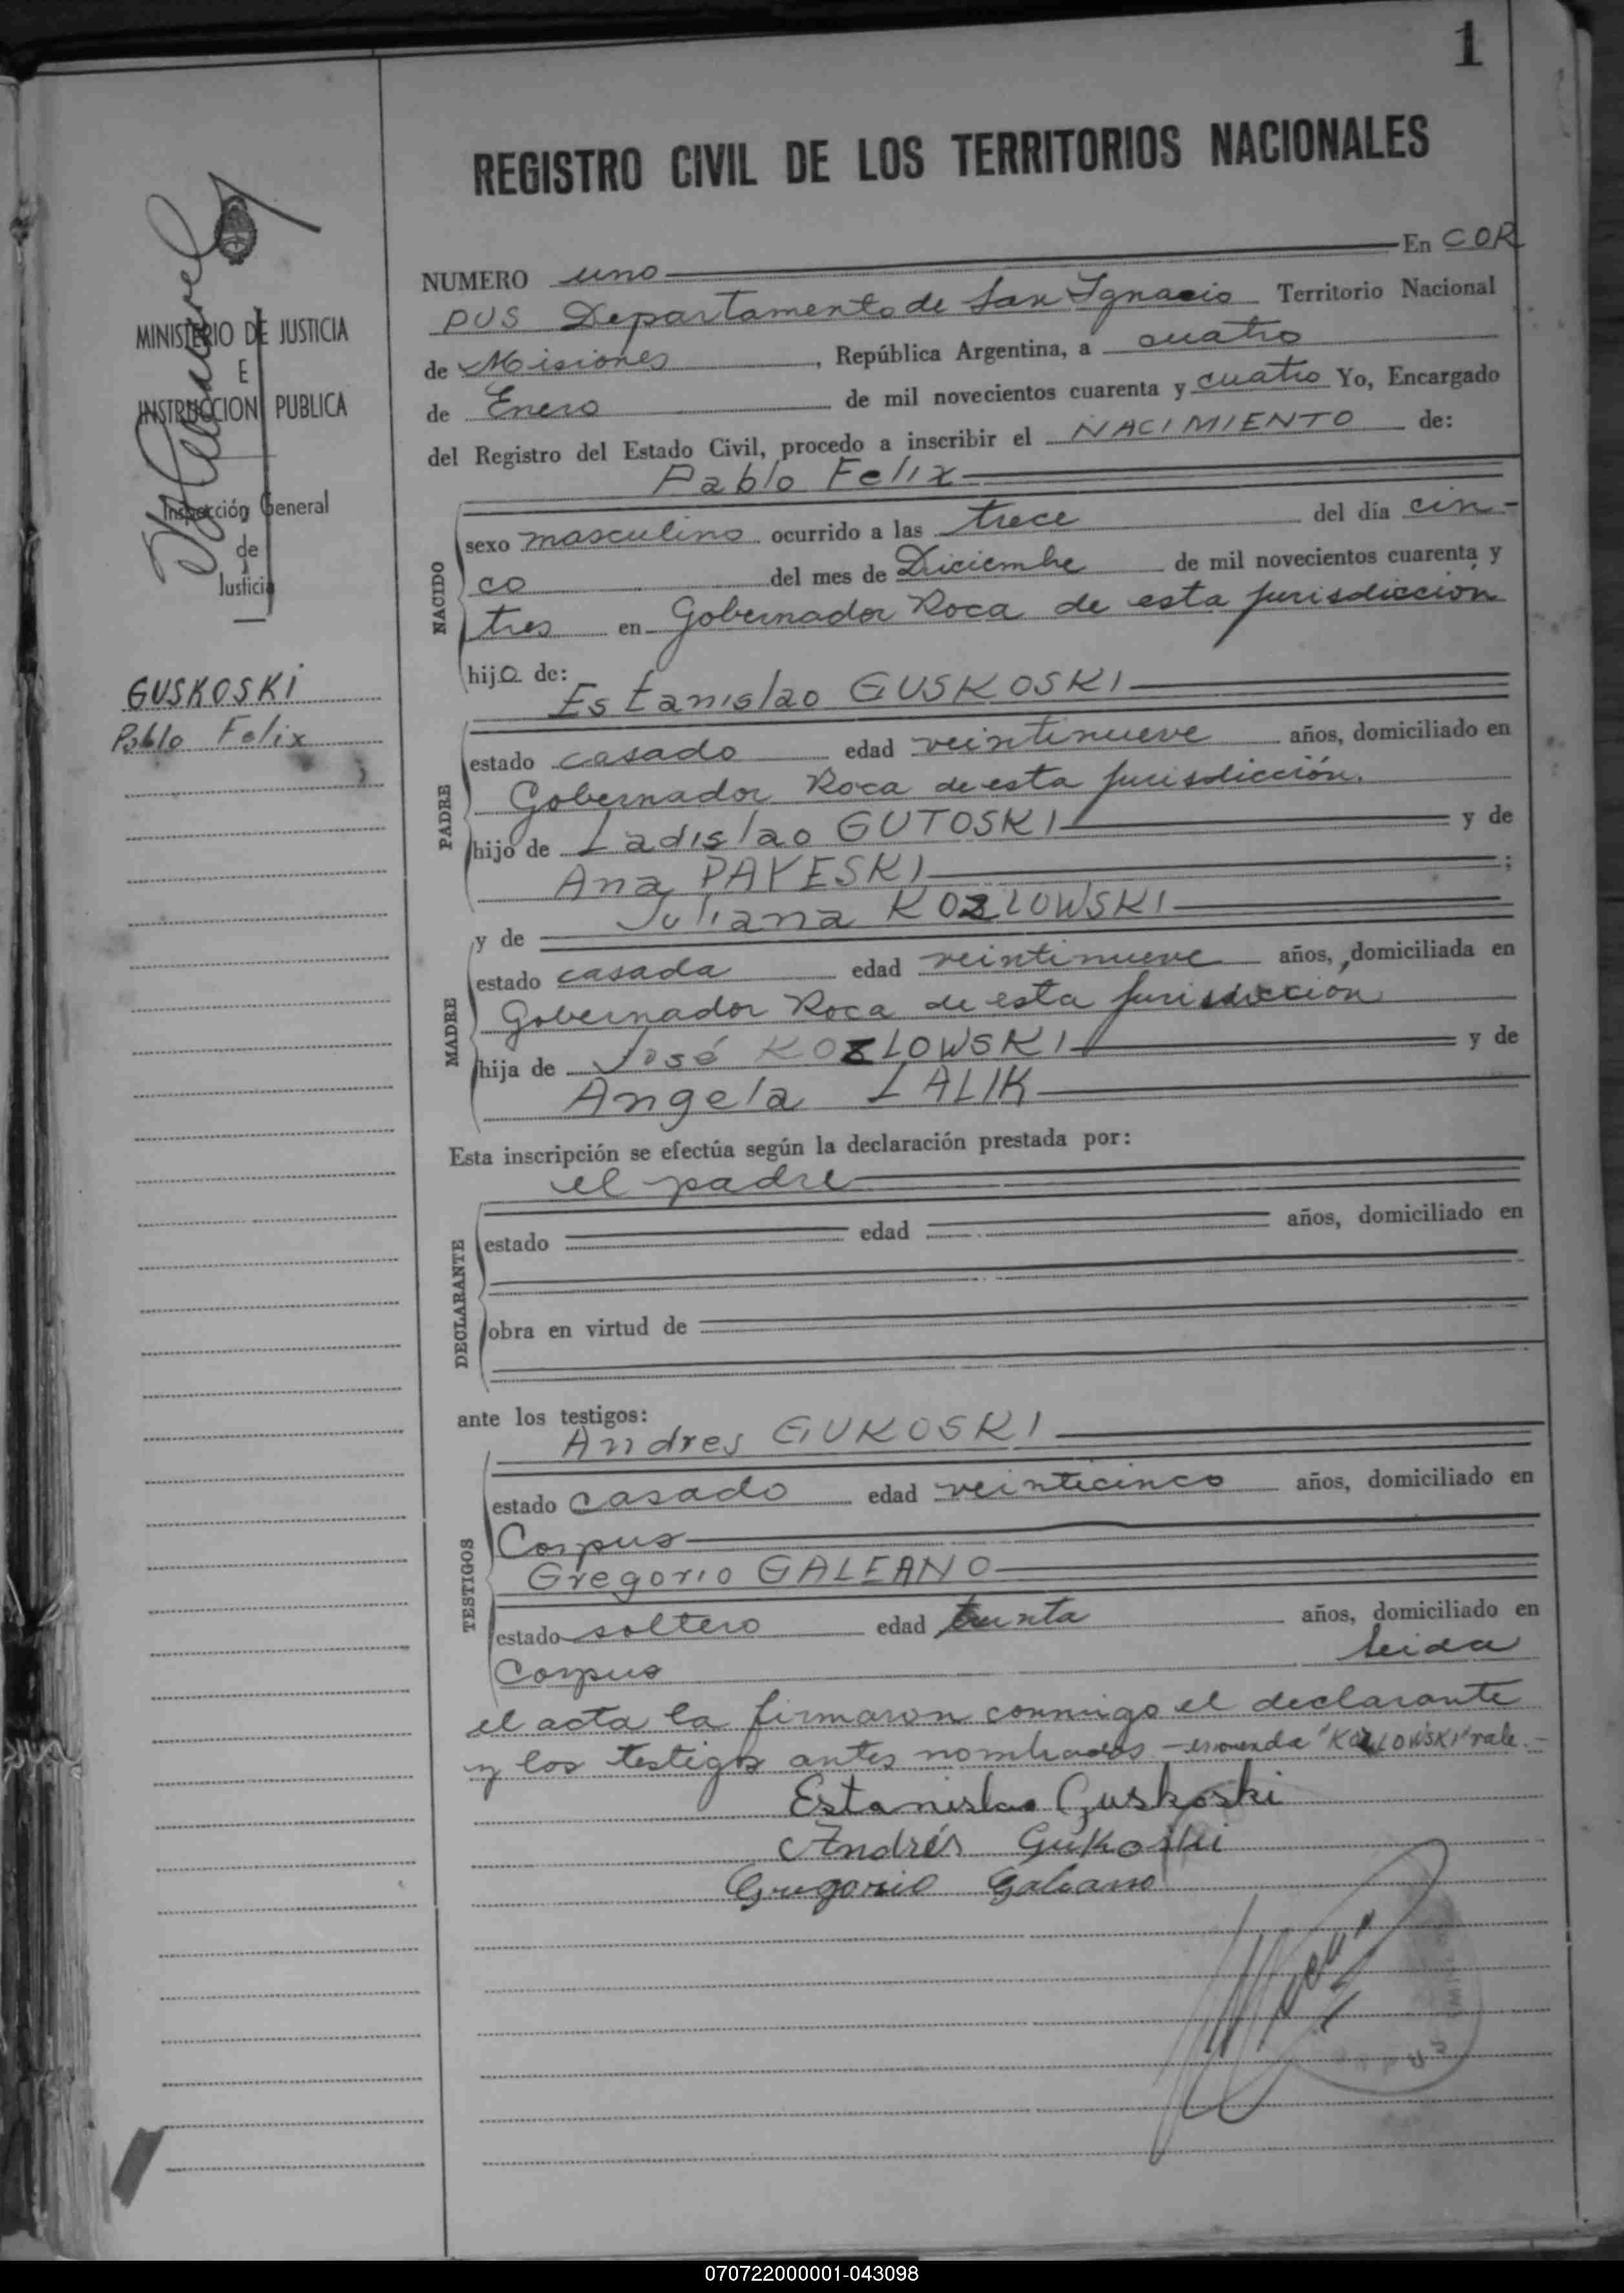 1
REGISTRO CIVIL DE LOS TERRITORIOS NACIONALES
MINISTERIO DE JUSTICIA
E
INSTRUCCION PUBLICA
Inspección General
de
Justicia
GUSKOSKI
Pablo Felix
NUMERO uno En COR
PUS Departamento de San Ignacio Territorio Nacional
de Misiones, República Argentina, a cuatro
de Enero de mil novecientos cuarenta y cuatro Yo, Encargado
del Registro del Estado Civil, procedo a inscribir el NACIMIENTO de:
Pablo Felix
NACIDO
sexo masculino ocurrido a las trece del día cin-
co del mes de Diciembre de mil novecientos cuarenta y
tres en Gobernador Roca de esta jurisdiccion
hijo de:
Estanislao GUSKOSKI
PADRE
estado casado edad veintinueve años, domiciliado en
Gobernador Roca de esta jurisdicción.
hijo de Ladislao GUTOSKI y de
Ana PAYESKI ;
Juliana KOZLOWSKI
y de
MADRE
estado casada edad veintinueve años, domiciliada en
Gobernador Roca de esta jurisdiccion
hija de José KOZLOWSKI y de
Angela LALIK
Esta inscripción se efectúa según la declaración prestada por:
el padre
DECLARANTE
estado edad años, domiciliado en
obra en virtud de
ante los testigos:
Andres GUKOSKI
TESTIGOS
estado casado edad veinticinco años, domiciliado en
Corpus
Gregorio GALEANO
estado soltero edad treinta años, domiciliado en
Corpus leida
el acta la firmaron conmigo el declarante
y los testigos antes nombrados - enmenda "KOZLOWSKI" vale.-
Estanislao Guskoski
Andrés Gukoski
Gregorio Galeano
070722000001-043098